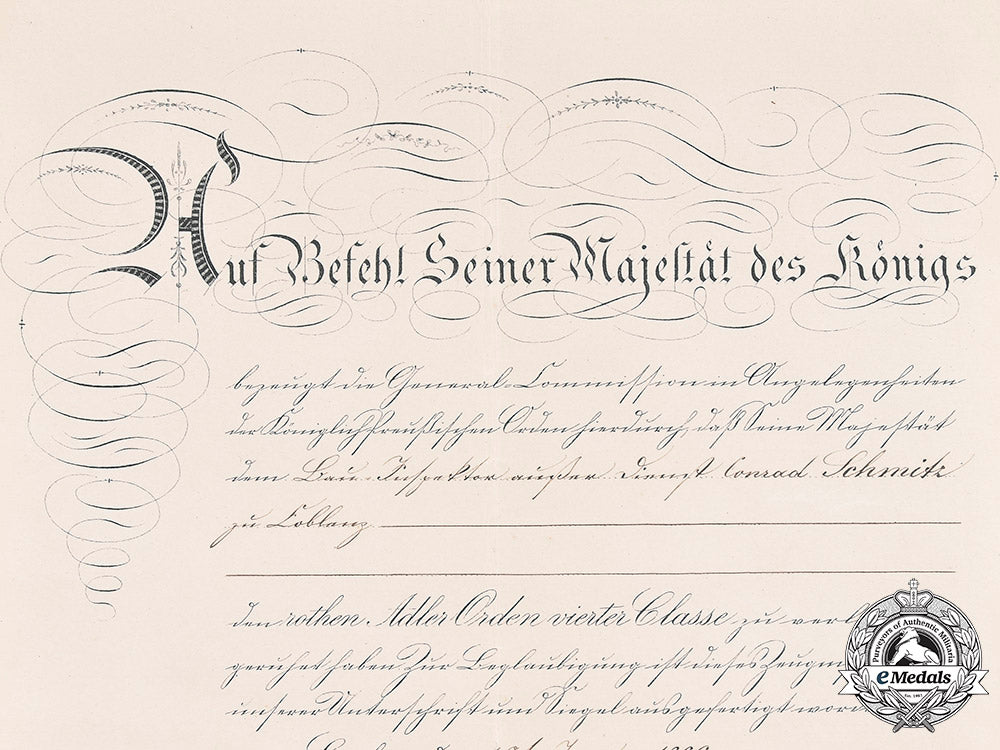 Auf Befehl Seiner Majestät des Königs
bezeugt die General-Commission in Angelegenheiten
der Königlich Preußischen Orden hierdurch, daß Seine Majestät
dem Bau-Inspektor außer Dienst Conrad Schmitz
zu Coblenz
den rothen Adler Orden vierter Classe zu verl
geruhet haben. Zur Beglaubigung ist dieses Zeugn
unserer Unterschrift und Siegel ausgefertigt word
Purveyors of Authentic Militaria
eMedals